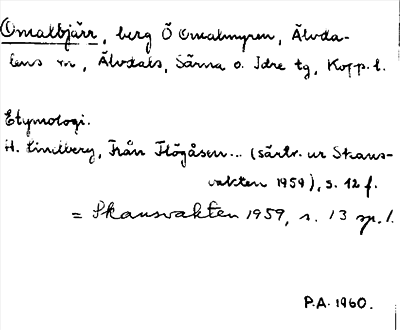 Omalbjärr, berg Ö Omalmyren, Älvda-
lens sn, Älvdals, Särna o. Idre tg, Kopp. l.
Etymologi.
H. Lindberg, Från Flögåsen... (särtr. ur Skans-
vakten 1959), s. 12 f.
= Skansvakten 1959, s. 13 sp. 1.
P.A. 1960.